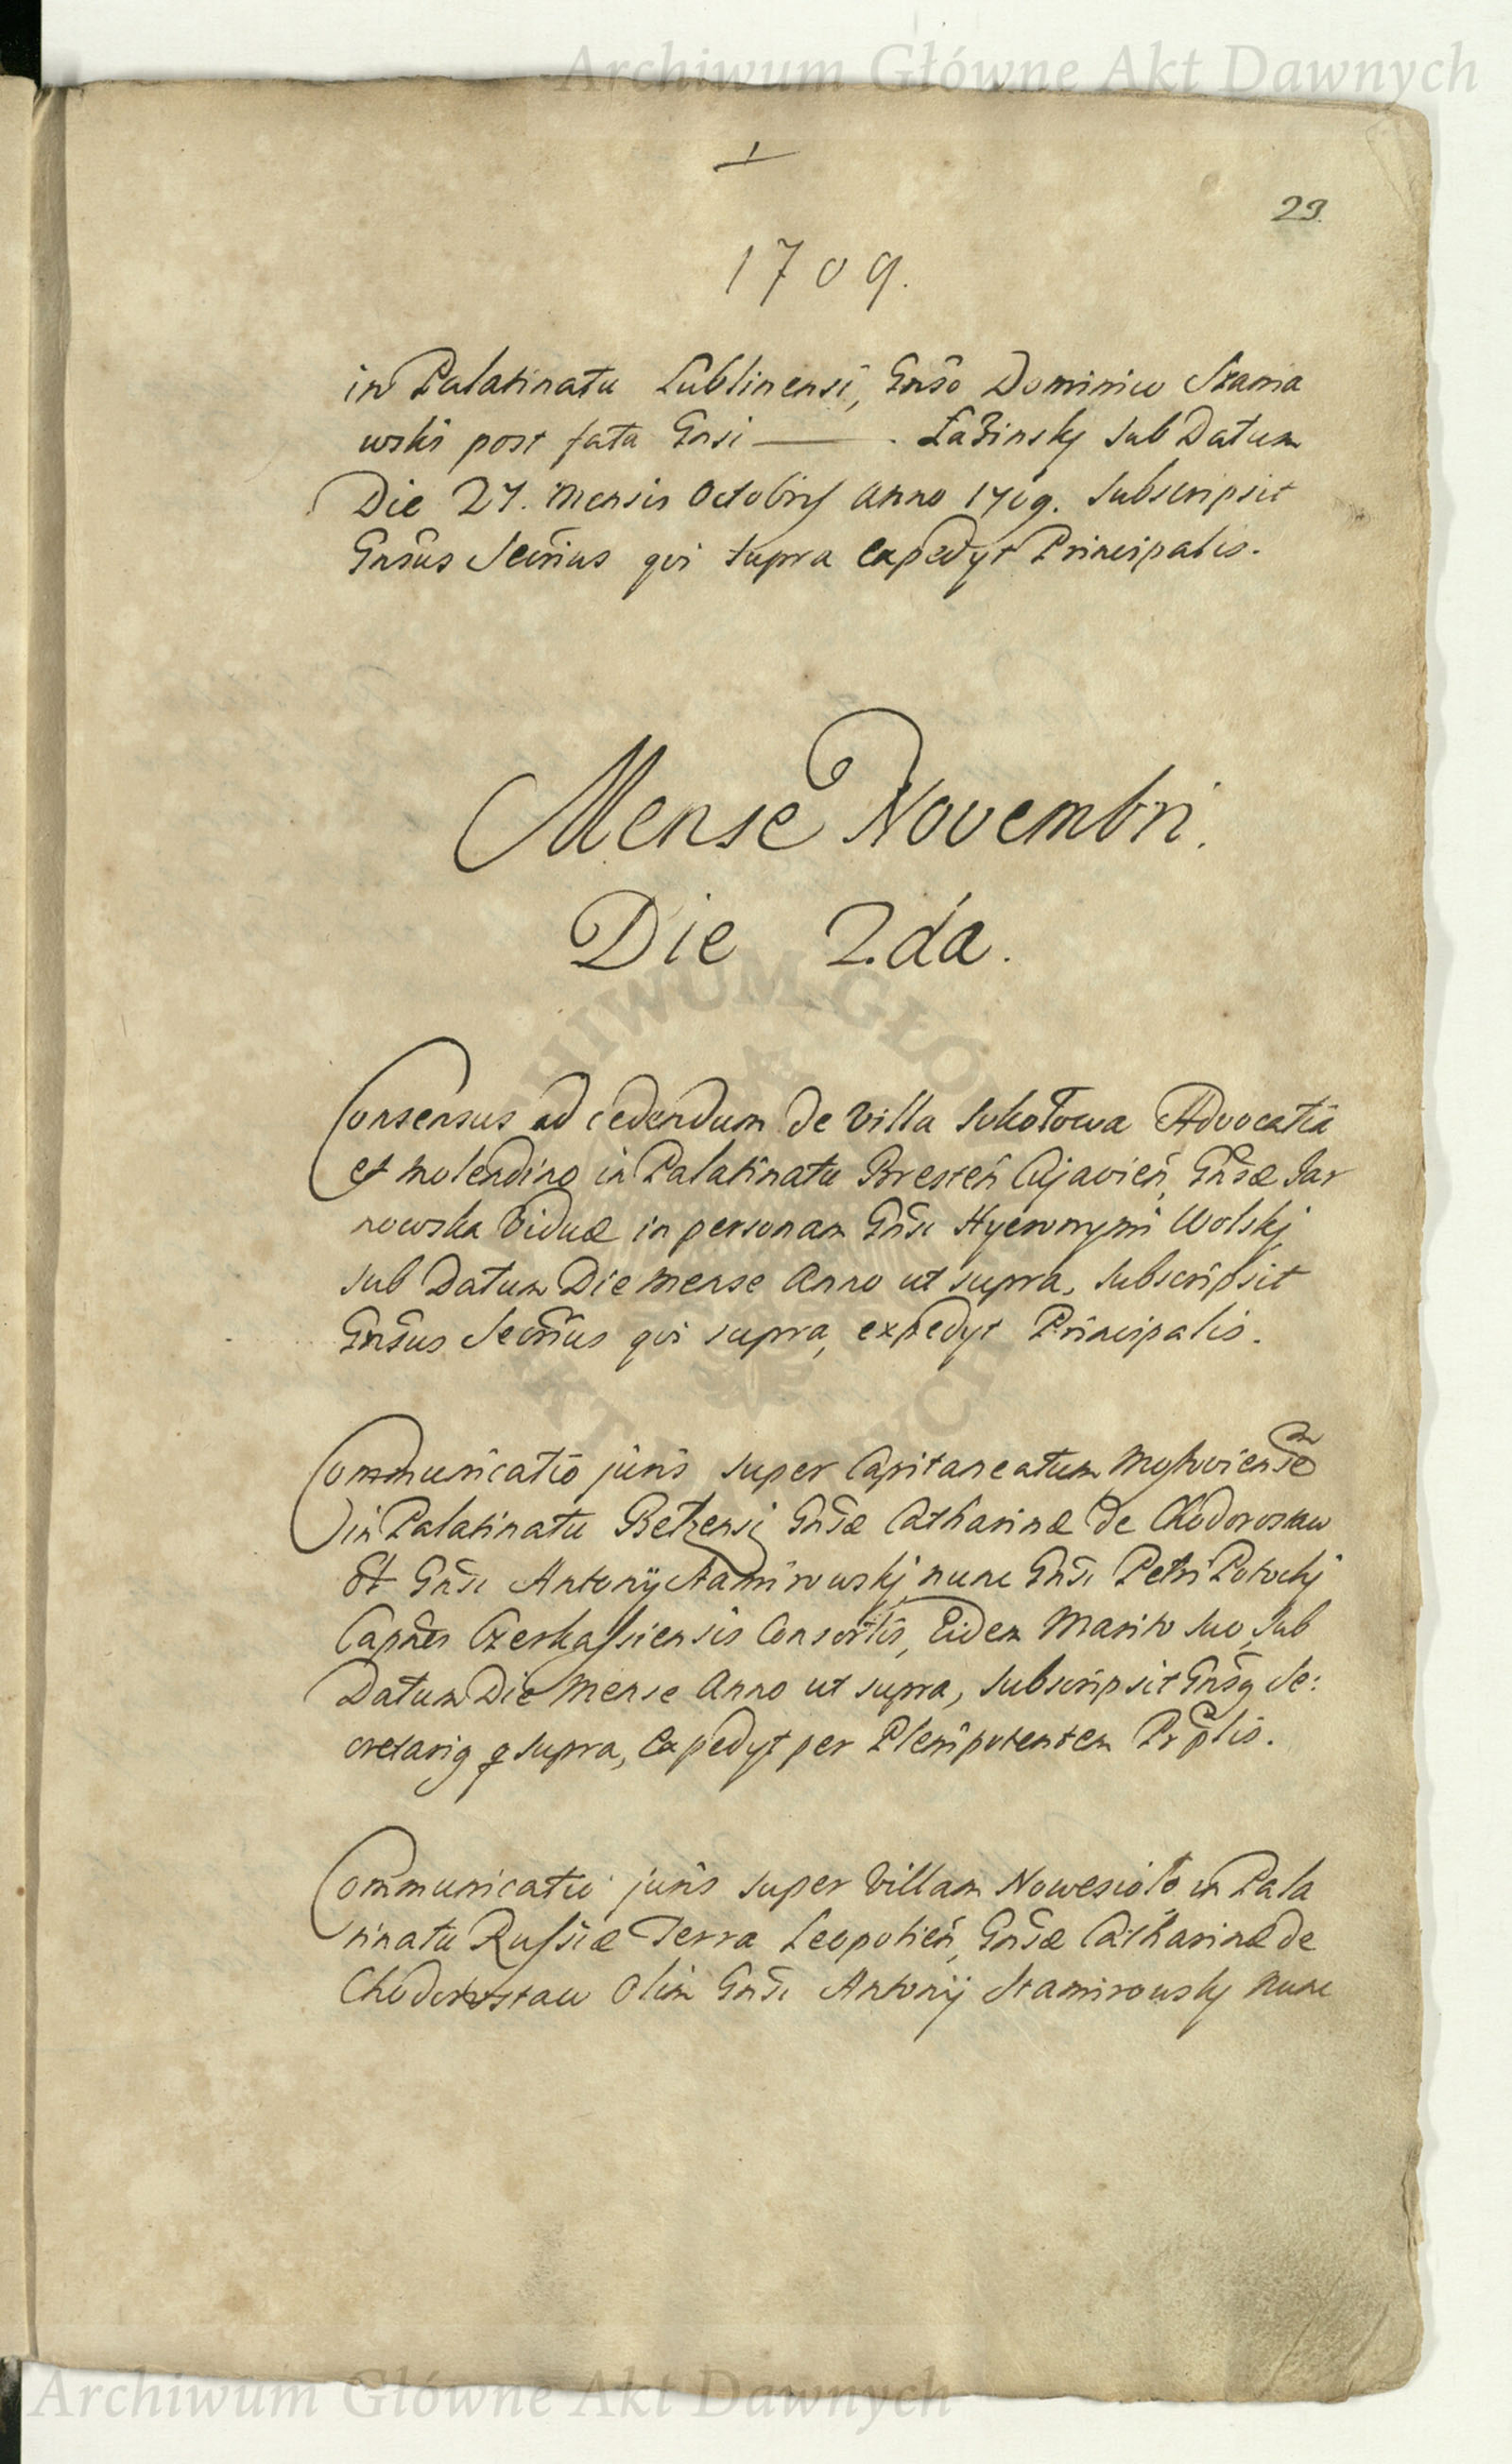 Archiwum Główne Akt Dawnych
1
29.
1709.
in Palatinatu Lublinensi, Gnso Dominico Szania
wski post fata Gnsi — . Łazinskj sub Datum
Die 27. mensis Octobris Anno 1709. Subscripsit
Gnsus Secrius qui supra expedyt Principalis.
Mense Novembri.
Die 2.da.
Consensus ad cedendum de Villa Sokołowa Advocatia
et molendino in Palatinatu Bresten Cujavien, Gnsæ Jar
nowska Viduæ in personam Gnsi Hyeronymi Wolskj
sub Datum Die mense Anno ut supra, subscripsit
Gnsus Secrius qui supra, expedyt Principalis.
Communicatio juris super Capitaneatum
in Palatinatu Belzensi Gnsæ Catharinæ de Chodorostaw
Gnsi Antonij Stamirowskj nunc Gnsi Petri Potockj
Capnei Czerkassiensis Consortis, Eidem Marito suo, sub
Datum Die Mense Anno ut supra, subscripsit Gnsq Se:
cretariq q supra, expedyt per Plenipotentem Prplis.
Communicatio juris super Villam Nowesioło in Pala
tinatu Russiæ Terra Leopolien, Gnsæ Catharinæ de
Chodorostaw Olim Gnsi Antonij Stamirowskj nunc
Archiwum Główne Akt Dawnych